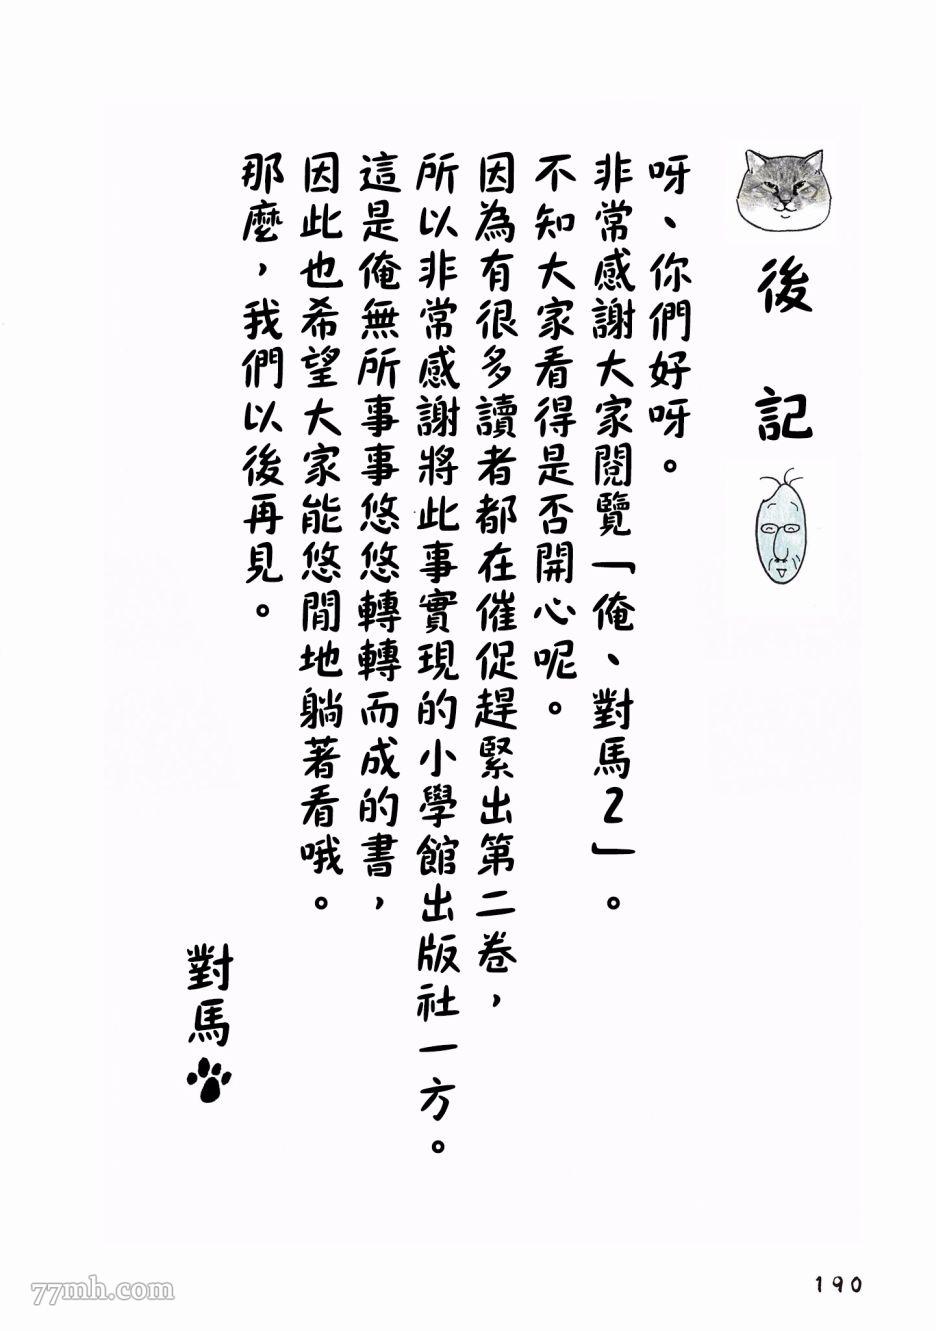 後記
呀、你們好呀。
非常感謝大家閱覽「俺、對馬2」。
不知大家看得是否開心呢。
因為有很多讀者都在催促趕緊出第二卷，
所以非常感謝將此事實現的小學館出版社一方。
這是俺無所事事悠悠轉轉而成的書，
因此也希望大家能悠閒地躺著看哦。
那麼，我們以後再見。
對馬
77mh.com
190